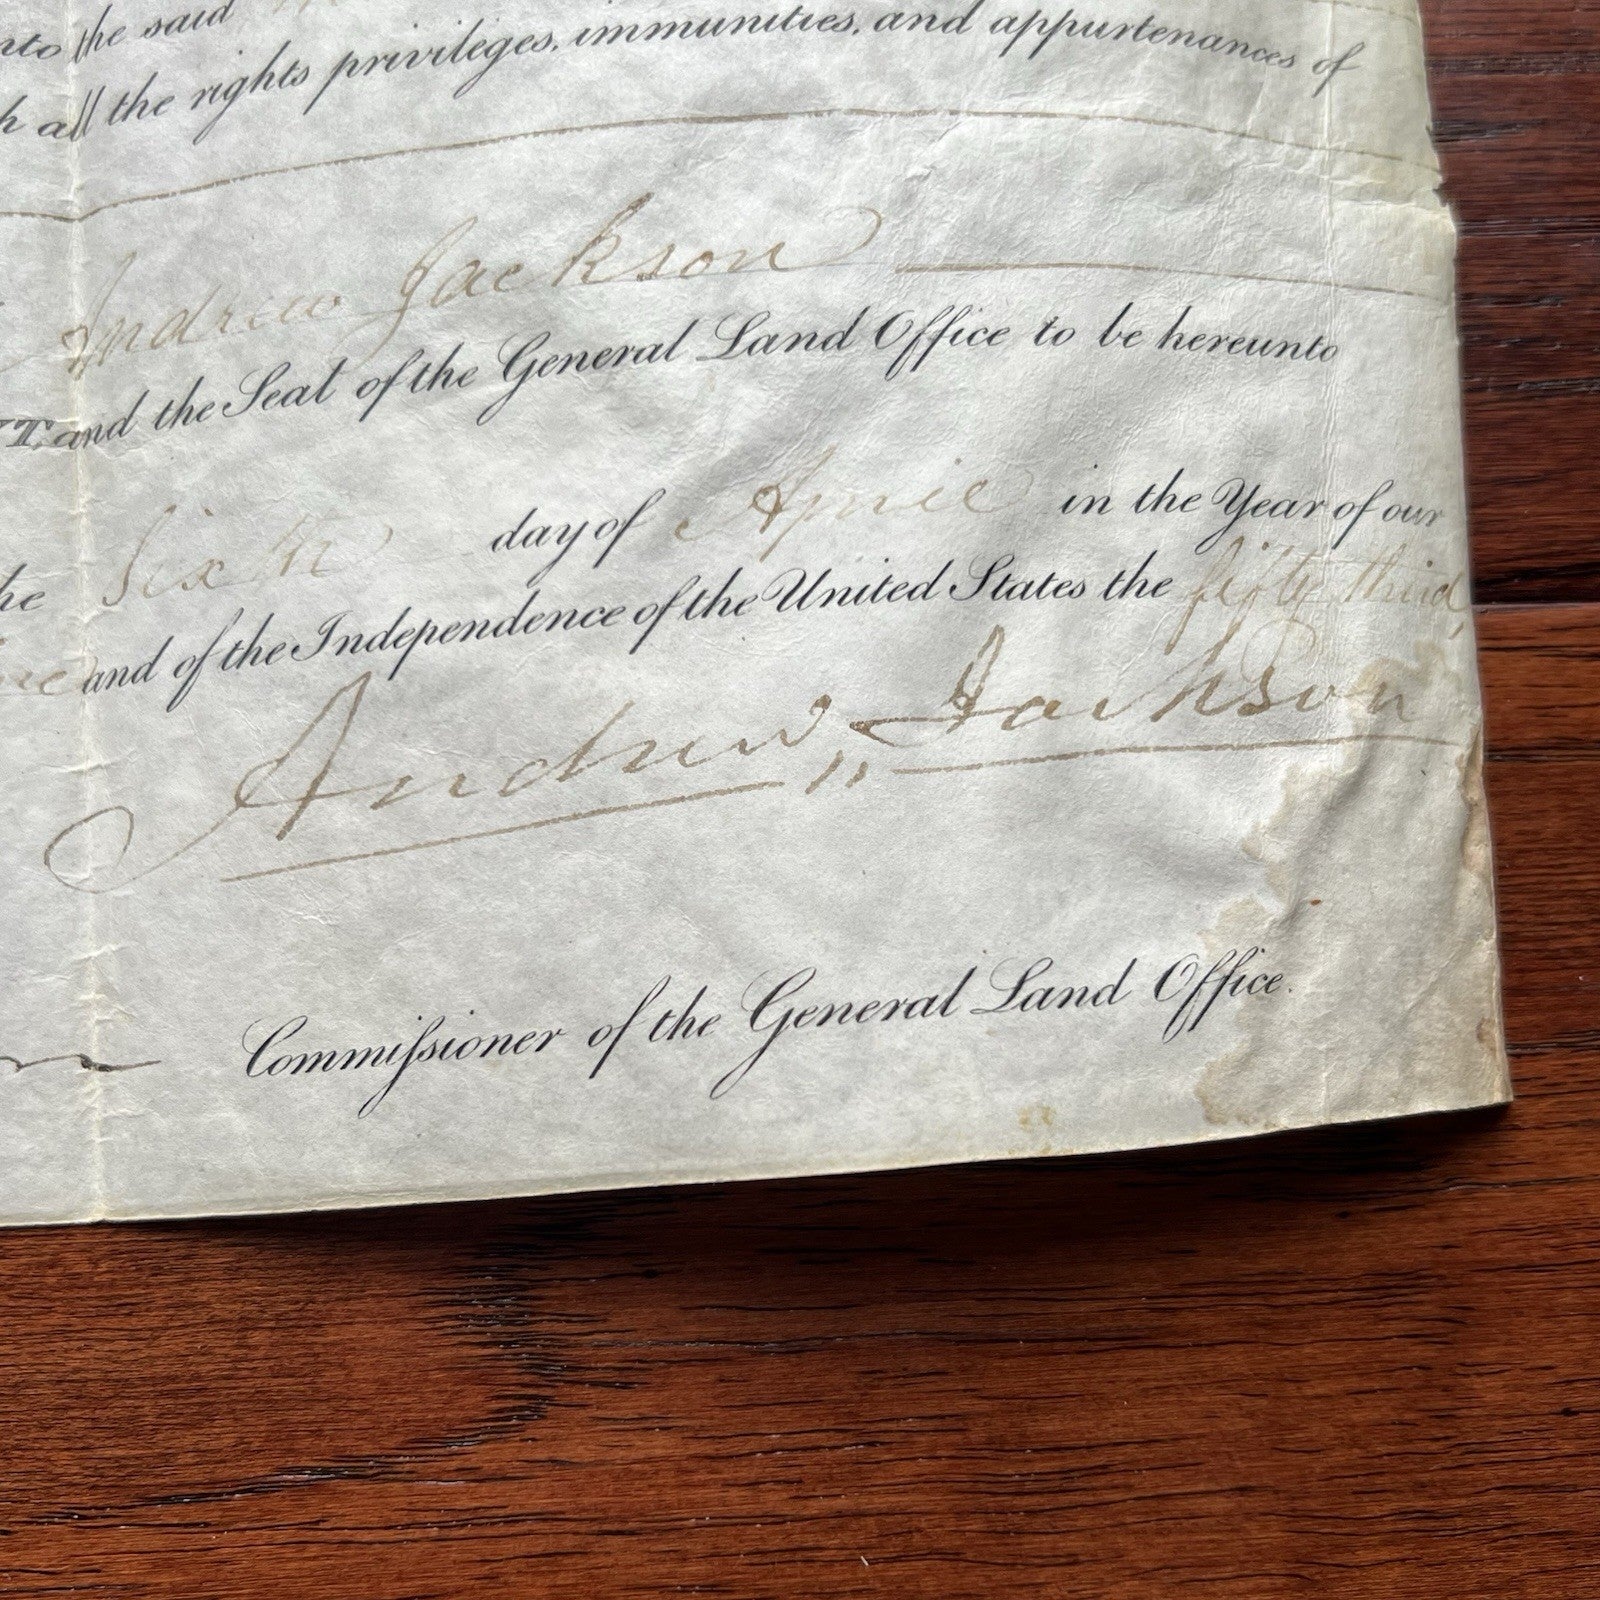 nto the said
h all the rights privileges, immunities, and appurtenances of
Andrew Jackson
T. and the Seal of the General Land Office to be hereunto
he Sixth day of April in the Year of our
and of the Independence of the United States the fifty third,
Andrew Jackson
Commiſsioner of the General Land Office.